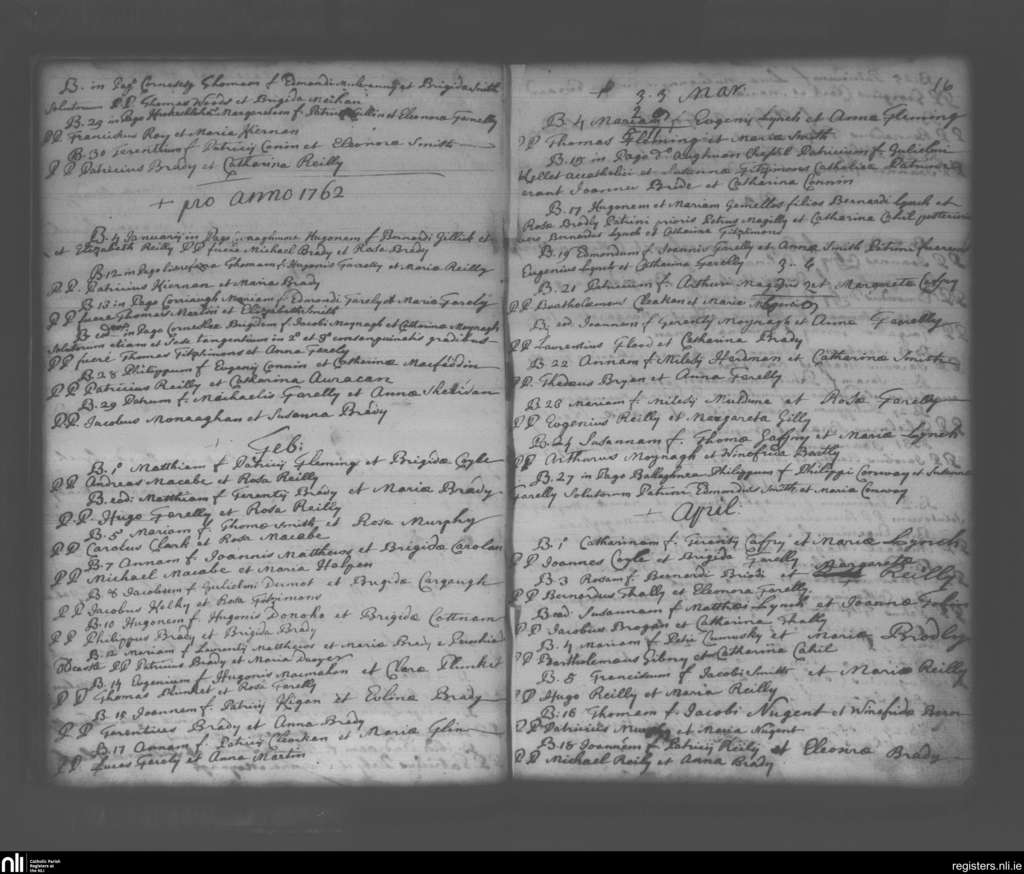 B. in Pago Corneskey Thomam f. Edmondi et Brigida Smith
Solutorum PP Thomas Woods et Brigida Meihan
B. 29 in Pago Margaretam f. Patricii et Eleonora Farrelly
PP Franciscus Roy et Maria Hiernan
B. 30 Terentium f. Patricij Conin et Eleonora Smith
PP Patricius Brady et Catharina Reilly
+ pro anno 1762
B. 4 Januarij in Pago Hugonem f. Bernardi Gillick et
et Elizabeth Reilly PP fuere Michael Brady et Rosa Brady
B 12 in Pago Thomam f. Hugonis Farrelly et Maria Reilly
PP. Patricius Hiernan et Maria Brady
B 13 in Pago Corriaugh Mariam f. Edmondi Farely et Maria Farely
PP fuere Thomas Martin et Elizabeth Smith
B eodem in Pago Corneskee Brigidam f. Jacobi Moynagh et Catharina Moynagh
Solutorum etiam et Sese tangentium in 2o et 3o consanguinitis gradibus
PP fuere Thomas Fitzsimons et Anna Farely
B. 28 Philippum f. Eugenij Connin et Catharinæ Macfaddin
PP Patricius Reilly et Catharina Auracan
B. 29 Petrum f. Michaelis Farelly et Annæ Sheridan
PP. Jacobus Monaaghan et Susanna Brady
Feb:
B. 1o Matthiam f Patricij Fleming et Brigidæ Coyle
PP Andreas Macabe et Rosa Reilly
B. eod: Matthiam f Terentij Brady et Mariæ Brady
P.P. Hugo Farelly et Rosa Reilly
B. 5 Mariam f. Thomæ Smith et Rosæ Murphy
PP Carolus Clark et Rosa Macabe
B. 7 Annam f. Joannis Matthews et Brigidæ Carolan
PP Michael Macabe et Maria Halpen
B 8 Jacobum f. Gulielmi Dermot et Brigidæ Cargaugh
PP Jacobus Kelly et Rosa Fitzsimons
B. 10 Hugonem f. Hugonis Donoho et Brigidæ Cottnam
PP Philippus Brady et Brigida Brady
B. 12 Mariam f. Laurentij Matthews et Maria Brady e Parochia
PP Patricius Brady et Maria Dwyer
B. 14 Eugenium f. Hugonis Macmahon et Claræ Plunket
PP Thomas Plunket et Rosa Farelly
B. 15 Joannem f. Patricij Kigan et Evlina Brady
PP Terentius Brady et Anna Brady
B. 17 Annam f. Patricij Clerkan et Mariæ Glin
PP. Lucas Farely et Anna Martin
16
3. 3 Mar.
B. 4 Mariam f. Eugenij Lynch et Anna Fleming
PP Thomas Fleming et Maria Smith
B. 15 in Pago Do. Aughnan Chappil Patricium f. Gulielmi
Kellet accatholici et Susanna Fitzsimons Catholica Patrini
erant Joannes Bride et Catharina Connin
B. 17 Hugonem et Mariam Gemellos filios Bernardi Lynch et
Rosæ Brady Patrini prioris Petrus Magilly et Catharina Cahil posterioris
vero Bernardus Lynch et Catharina Fitzsimons
B. 19 Edmondum f. Joannis Farelly et Annæ Smith Patrini fuerunt
Eugenius Lynch et Catharina Farelly 3. 4
B. 21 Patricium f. Arthur et Margareta Cafry
PP Bartholomeus Cleakan et Maria
B. eod. Joannem f. Terentij Moynagh et Anna Farelly
PP Laurentius Flood et Catharina Brady
B. 22 Annam f. Milesij Hardman et Catharinæ Smith
PP. Thadeus Bryan et Anna Farelly
B. 26 Mariam f. Milesij Muldune et Rosæ Farelly
PP Eugenius Reilly et Margareta Gilly
B. 24 Susannam f. Thomæ Gaffny et Mariæ Lynch
PP Arthurus Moynagh et Winefrida Bartly
B. 27 in Pago Ballaghan Philippum f. Philippi Conway et Susannæ
Farelly Solutorum Patrini Edmondus Smith et Maria Conway
+ April:
B. 1o Catharinam f. Terentij Cafry et Mariæ Lynch
PP Joannes Coyle et Brigida Farelly
B 3 Rosam f. Bernardi Bride et Margareta Reilly
PP Bernardus Shally et Eleonora Farelly
B. eod. Susannam f. Matthæi Lynch et Joannæ
PP Jacobus Brogan et Catharina Shally
B. 4 Mariam f. Petri Cumosky et Mariæ Brodly
PP Bartholomæus Gibny et Catharina Cahil
B. 5 Franciscum f. Jacobi Smith et Mariæ Reilly
PP Hugo Reilly et Maria Reilly
B. 16 Thomam f. Jacobi Nugent et Winefridæ Bern
PP Patricius et Maria Nugent
B. 18 Joannem f. Patricij Reily et Eleonræ Brady
PP Michael Reily et Anna Brady
nli
Catholic Parish
Registers at
the NLI
registers.nli.ie